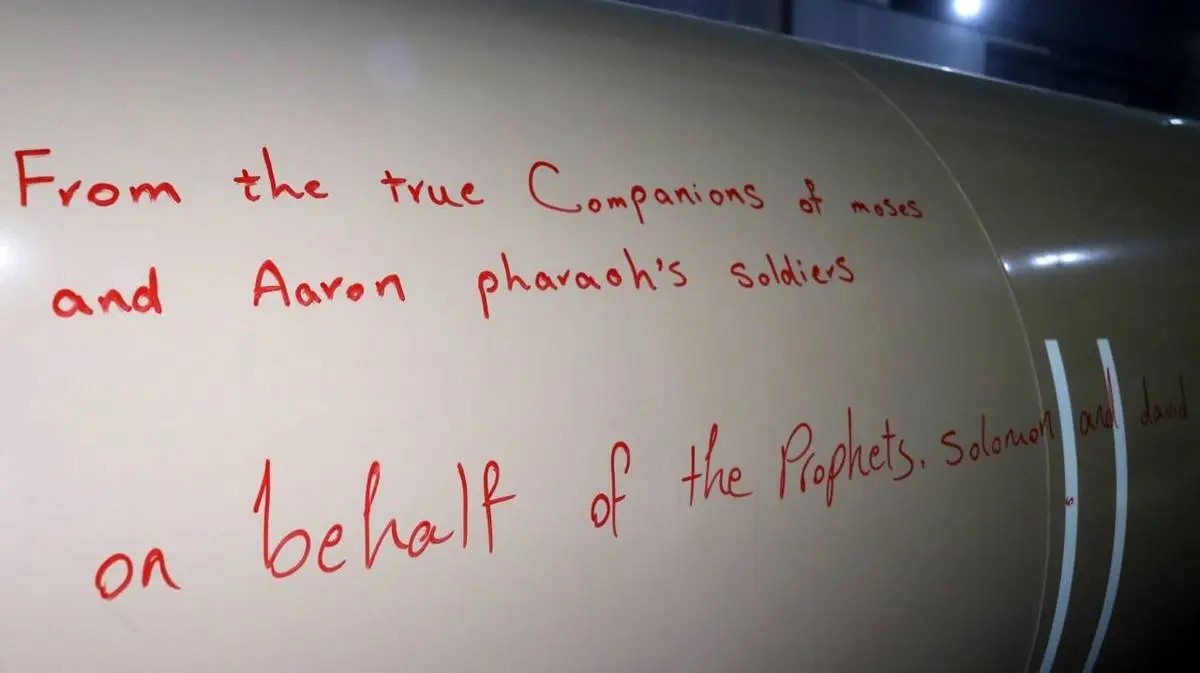 From the true Companions of moses
and Aaron pharaoh's soldiers
on behalf of the Prophets. Solomon and david